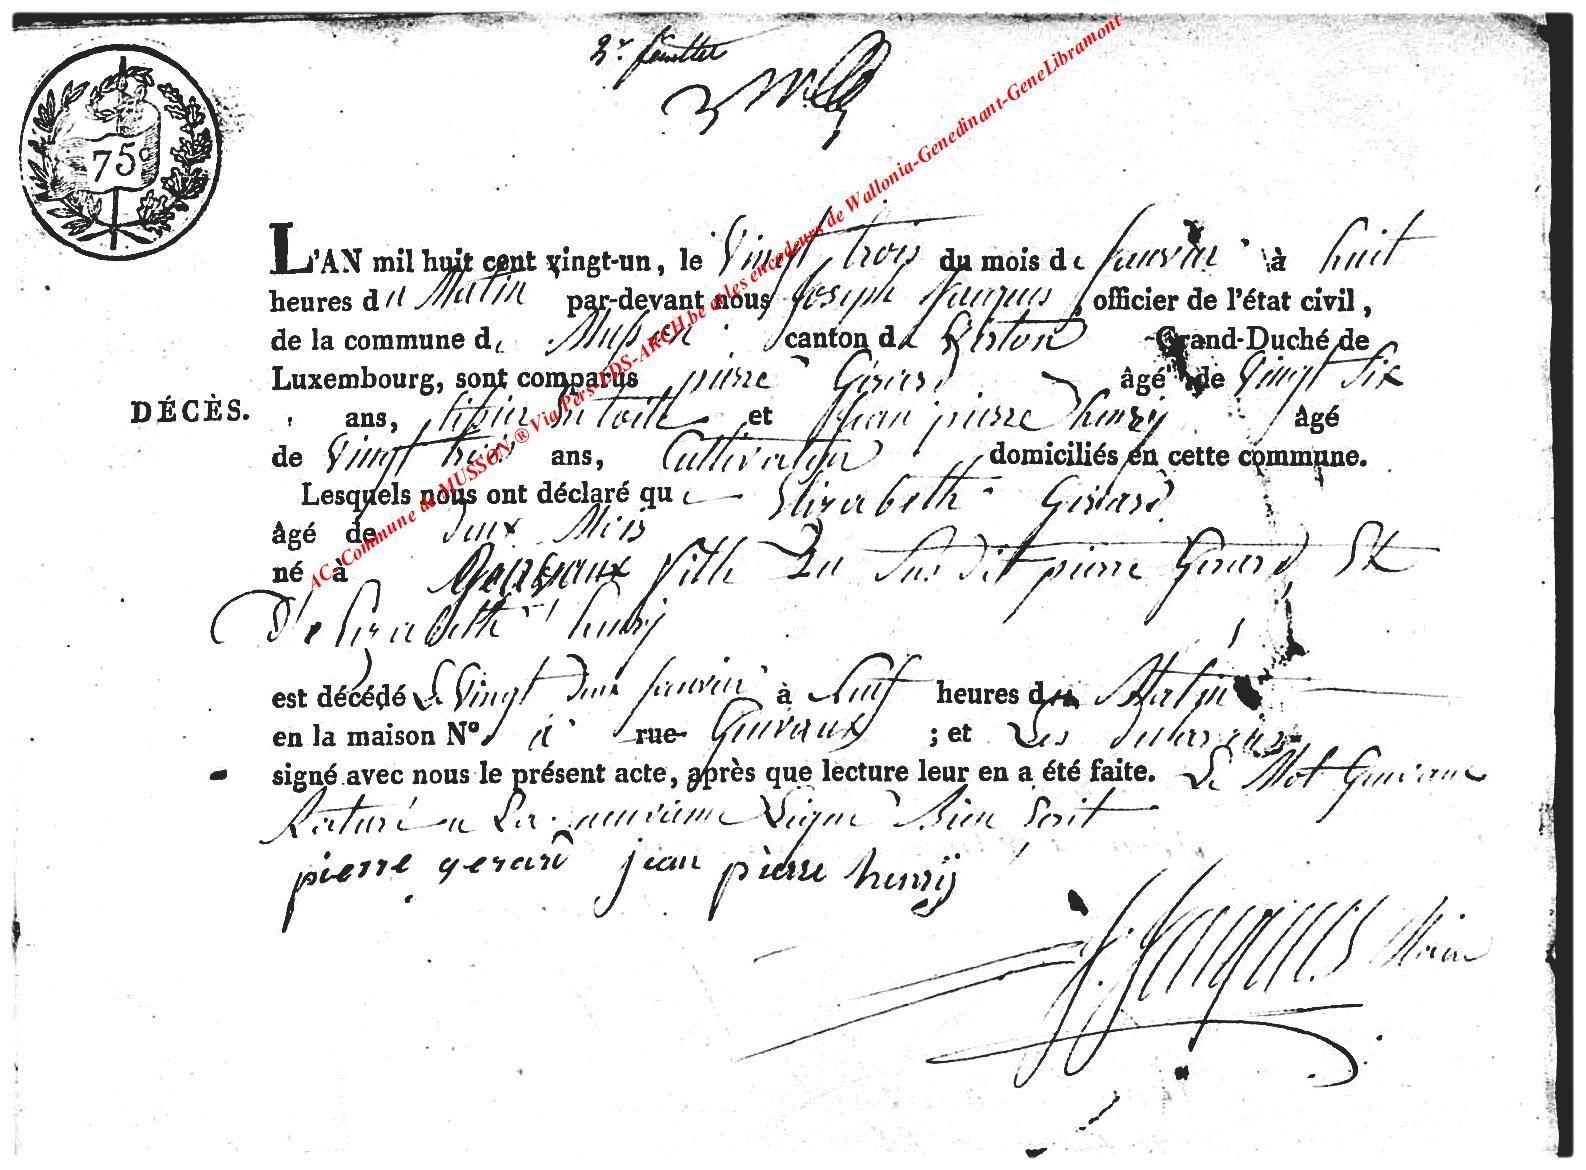 2e feuillet
75c
L'AN mil huit cent vingt-un, le Vingt trois du mois de Janvier à huit
heures du Matin par-devant nous Joseph Jacques, officier de l'état civil,
de la commune de Musson canton de Virton Grand-Duché de
Luxembourg, sont comparus pierre Gérard âgé de Vingt Six
DÉCÈS.
ans, tissier en toile et Jean pierre henry âgé
de Vingt trois ans, Cultivateur domiciliés en cette commune.
Lesquels nous ont déclaré que Elizabeth Gérard
âgé de deux Mois
né à fille du Sus dit pierre Gerard Et
d'elizabeth henry
est décédé le Vingt deux janvier à neuf heures du Matin
en la maison N° à rue ; et Les déclarans
signé avec nous le présent acte, après que lecture leur en a été faite. Le Mot
Raturé a La neuvieme Ligne Bien Ecrit
pierre gerard jean pierre henrÿ
J. Jacques Maire
AC-Commune de MUSSON ® Via Pers-LDS-ARCH.be et les encodeurs de Wallonia-Genedinant-GeneLibramont